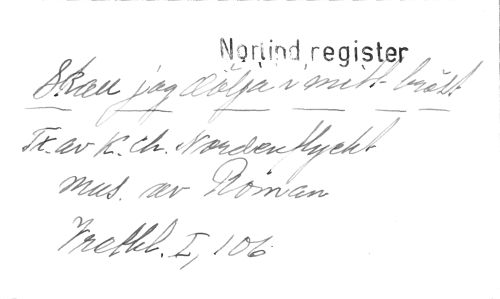 Norlind register
Skall jag dölja i mitt bröst
Tx. av K. Ch. Nordenflycht
mus. av Roman
Vretbl. I, 106